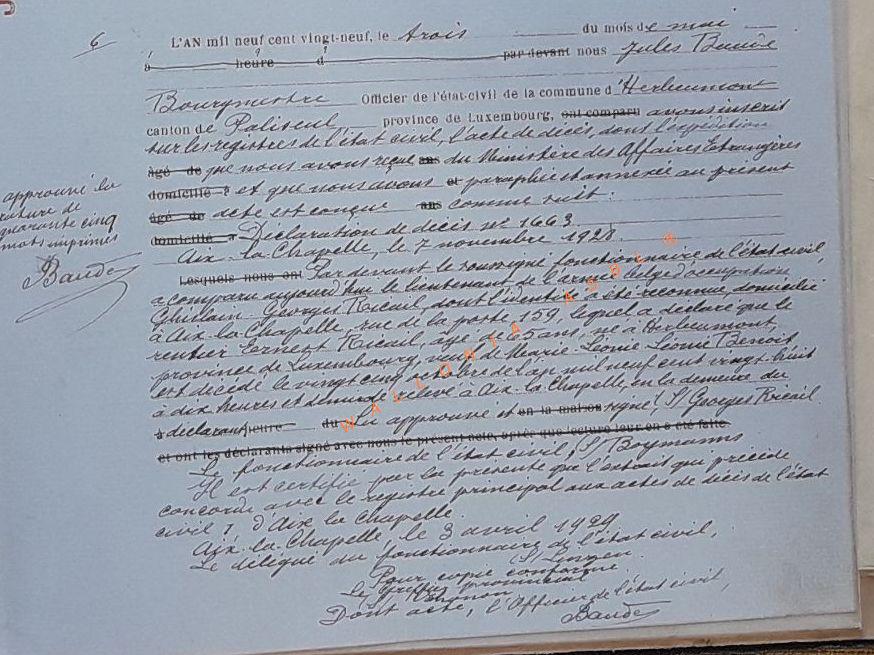 6
L'AN mil neuf cent vingt-neuf, le trois du mois de mai
à heure d par devant nous Jules Baude
Bourgmestre Officier de l'état-civil de la commune d'Herbeumont
canton de Paliseul province de Luxembourg, ont comparu avons inscrit
sur les registres de l'état civil, l'acte de décès, dont l'expédition
âgé de que nous avons reçue ans du Ministère des Affaires Etrangères
domicilié à et que nous avons et paraphée et annexée au présent
âgé de acte est conçue ans comme suit :
domicilié à Déclaration de décès n° 1663
Aix-la-Chapelle, le 7 novembre 1928.
Lesquels nous ont Par devant le soussigné fonctionnaire de l'état civil,
a comparu aujourd'hui le lieutenant de l'armée belge d'occupation
Ghislain Georges Ricail, dont l'identité a été reconnue, domicilié
à Aix-la-Chapelle, rue de la poste 159, lequel a déclaré que le
rentier Ernest Ricail, âgé de 65 ans, né à Herbeumont,
province de Luxembourg, veuf de Marie Léonie Benoit
est décédé le vingt cinq octobre de l'an mil neuf cent vingt-huit
à dix heures et demie de relevé à Aix-la-Chapelle, en la demeure du
à déclarant heure du Lu approuvé et en la maison signé, S/ Georges Ricail
et ont les déclarants signé avec nous le présent acte, après que lecture leur en a été faite.
Le fonctionnaire de l'état civil, S/ Boymanns
Il est certifié par la présente que l'extrait qui précède
concorde avec le registre principal aux actes de décès de l'état
civil I d'Aix la Chapelle.
Aix-la-Chapelle, le 3 avril 1929
Le délégué du fonctionnaire de l'état civil,
Pour copie conforme
Le greffier provincial
Dont acte, l'Officier de l'état civil,
Baude
approuvé la
rature de
quarante cinq
mots imprimés
Baude
WALLONIA ASBL ©